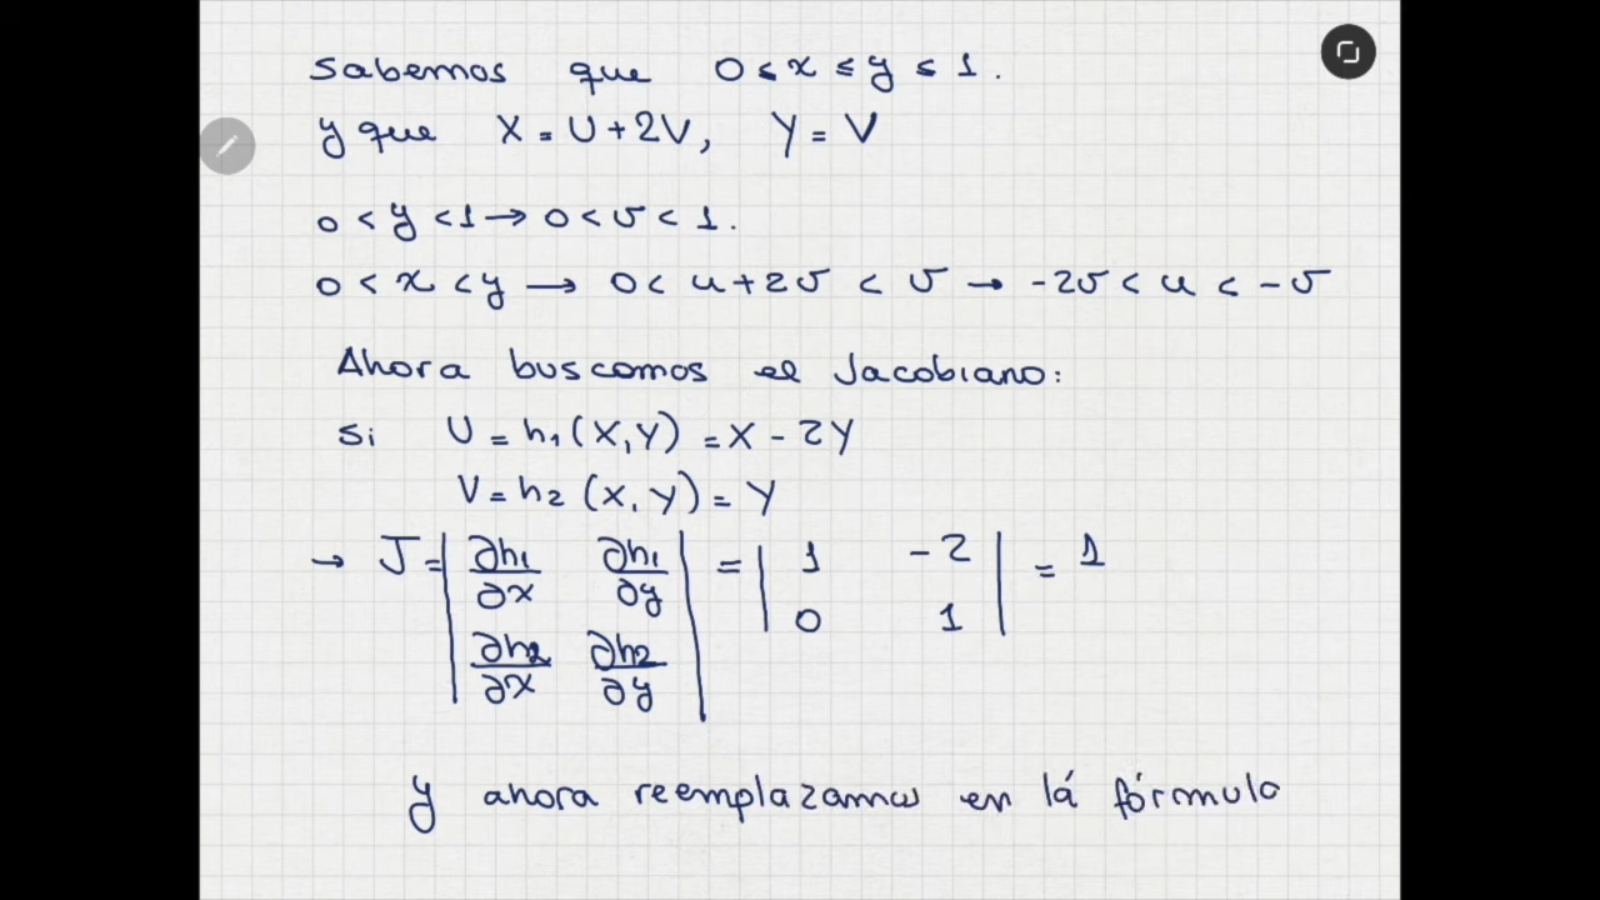 Sabemos que 0 ≤ x ≤ y ≤ 1.
y que X = U + 2V, Y = V
0 < y < 1 → 0 < v < 1.
0 < x < y → 0 < u + 2v < v → -2v < u < -v
Ahora buscamos el Jacobiano:
si U = h₁(X,Y) = X - 2Y
V = h₂(X,Y) = Y
→ J = | ∂h₁/∂x ∂h₁/∂y | = | 1 -2 | = 1
| ∂h₂/∂x ∂h₂/∂y | | 0 1 |
y ahora reemplazamos en lá fórmula